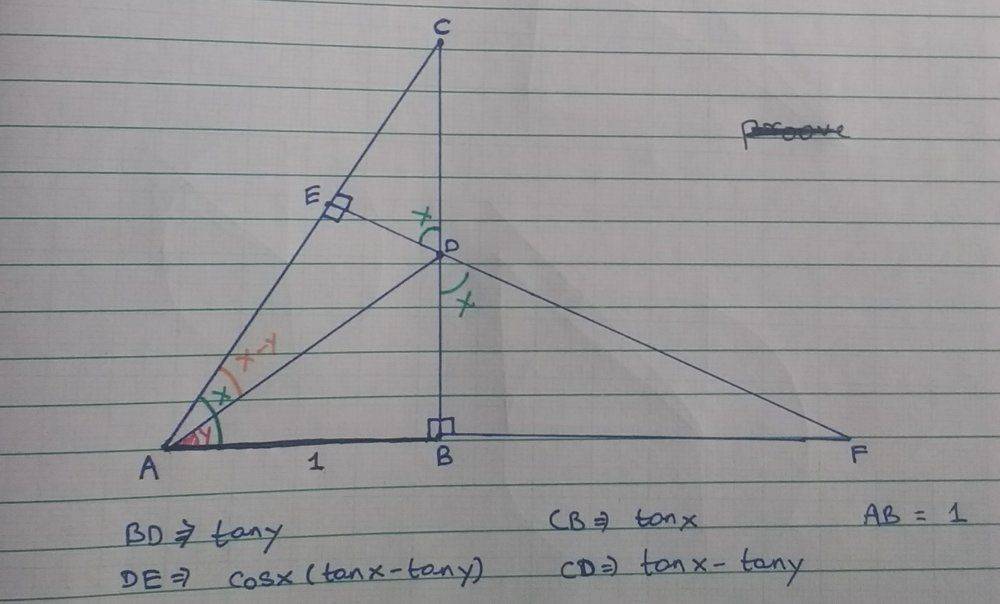 C
proove
E
x
D
x
x-y
x
y
A
1
B
F
BD ⇒ tany
CB ⇒ tanx
AB = 1
DE ⇒ cosx (tanx - tany)
CD ⇒ tanx - tany